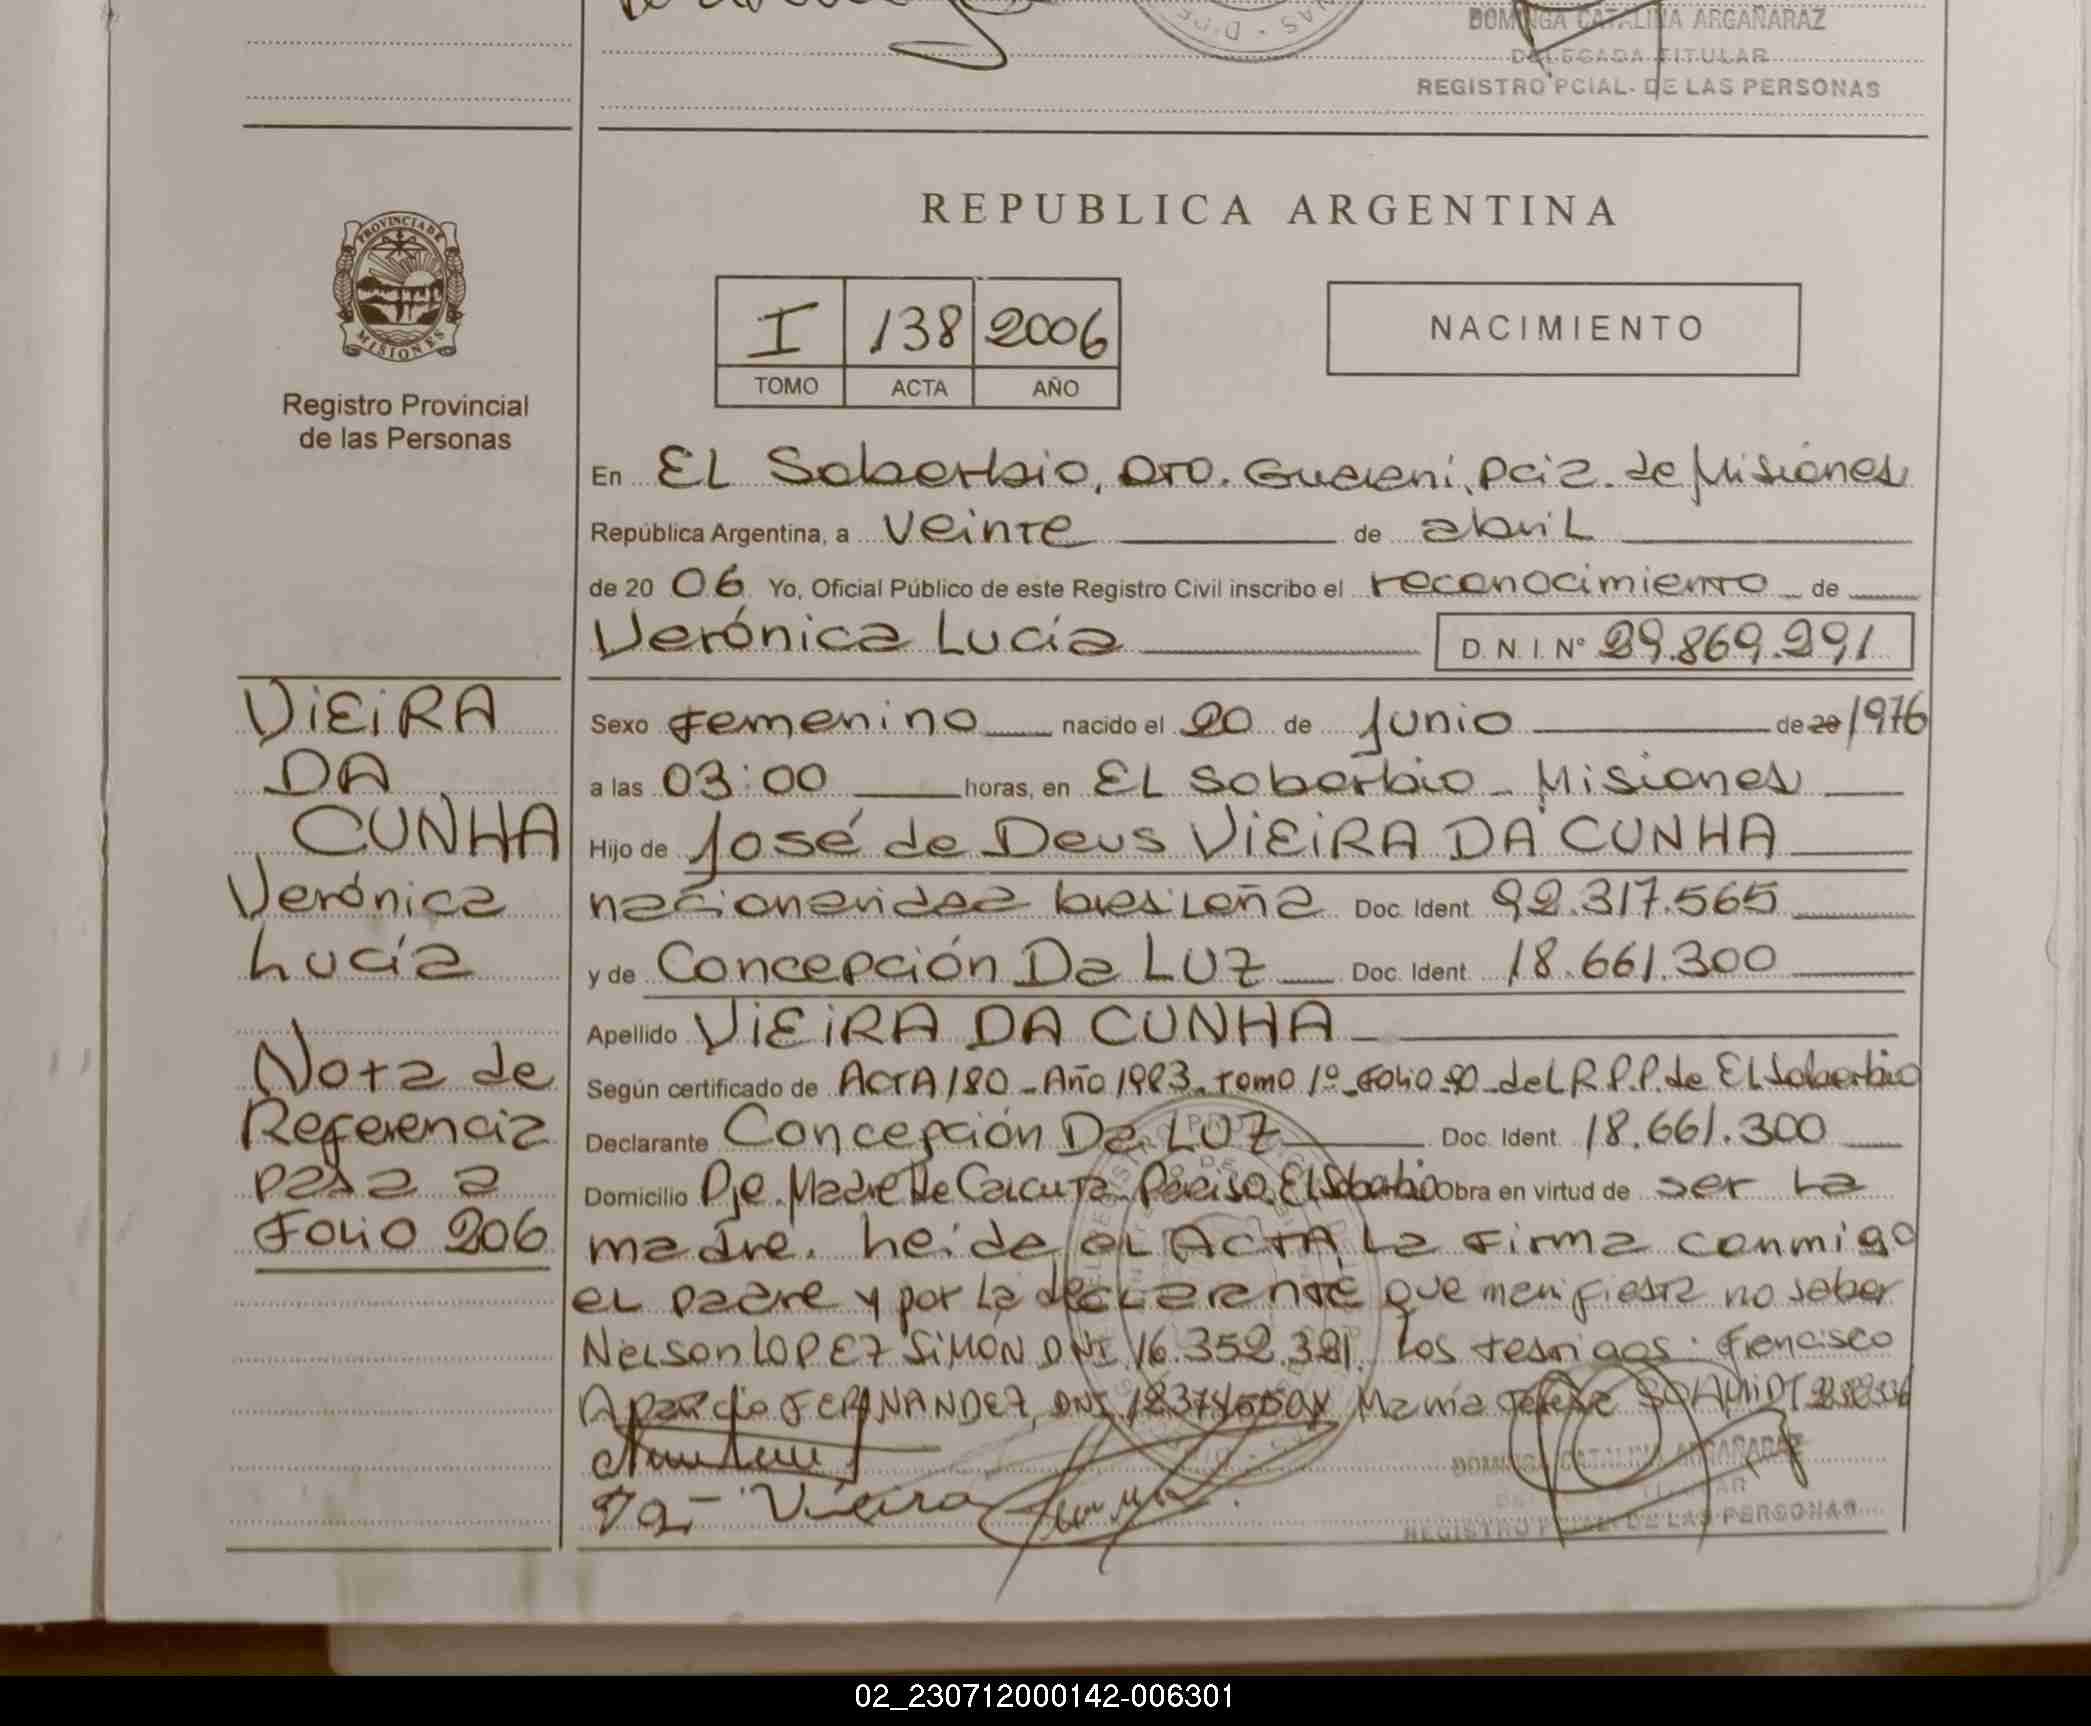 DOMINGA CATALINA ARGAÑARAZ
DELEGADA TITULAR
REGISTRO PCIAL. DE LAS PERSONAS
PROVINCIA DE
MISIONES
Registro Provincial
de las Personas
REPUBLICA ARGENTINA
I 138 2006
TOMO ACTA AÑO
NACIMIENTO
En EL Soberbio, Dto. Guaraní, Pcia. de Misiones
República Argentina, a veinte de abril
de 20 06 Yo, Oficial Público de este Registro Civil inscribo el reconocimiento de
Verónica Lucía D. N. I. Nº 29.869.291
Sexo Femenino nacido el 20 de junio de 20 1976
a las 03:00 horas, en EL Soberbio - Misiones
Hijo de José de Deus VIEIRA DA CUNHA
nacionalidad brasileña Doc. Ident. 92.317.565
y de Concepción Da LUZ Doc. Ident. 18.661.300
Apellido VIEIRA DA CUNHA
Según certificado de ACTA 180 - Año 1983 - Tomo 1º - Folio 90 - del R.P.P. de EL Soberbio
Declarante Concepción Da LUZ Doc. Ident. 18.661.300
Domicilio Pje. Madre de Calcuta Paraiso, El Soberbio Obra en virtud de ser la
madre. Leída el ACTA la firma conmigo
el padre y por la declarante que manifiesta no saber
Nelson LOPEZ SIMON DNI 16.352.321. Los testigos: Francisco
Aparicio FERNANDEZ, DNI y María Teresa SCHMIDT
Vieira
DOMINGA CATALINA ARGAÑARAZ
REGISTRO PCIAL. DE LAS PERSONAS
VIEIRA
DA
CUNHA
Verónica
Lucía
Nota de
Referencia
pasa a
Folio 206
02_230712000142-006301